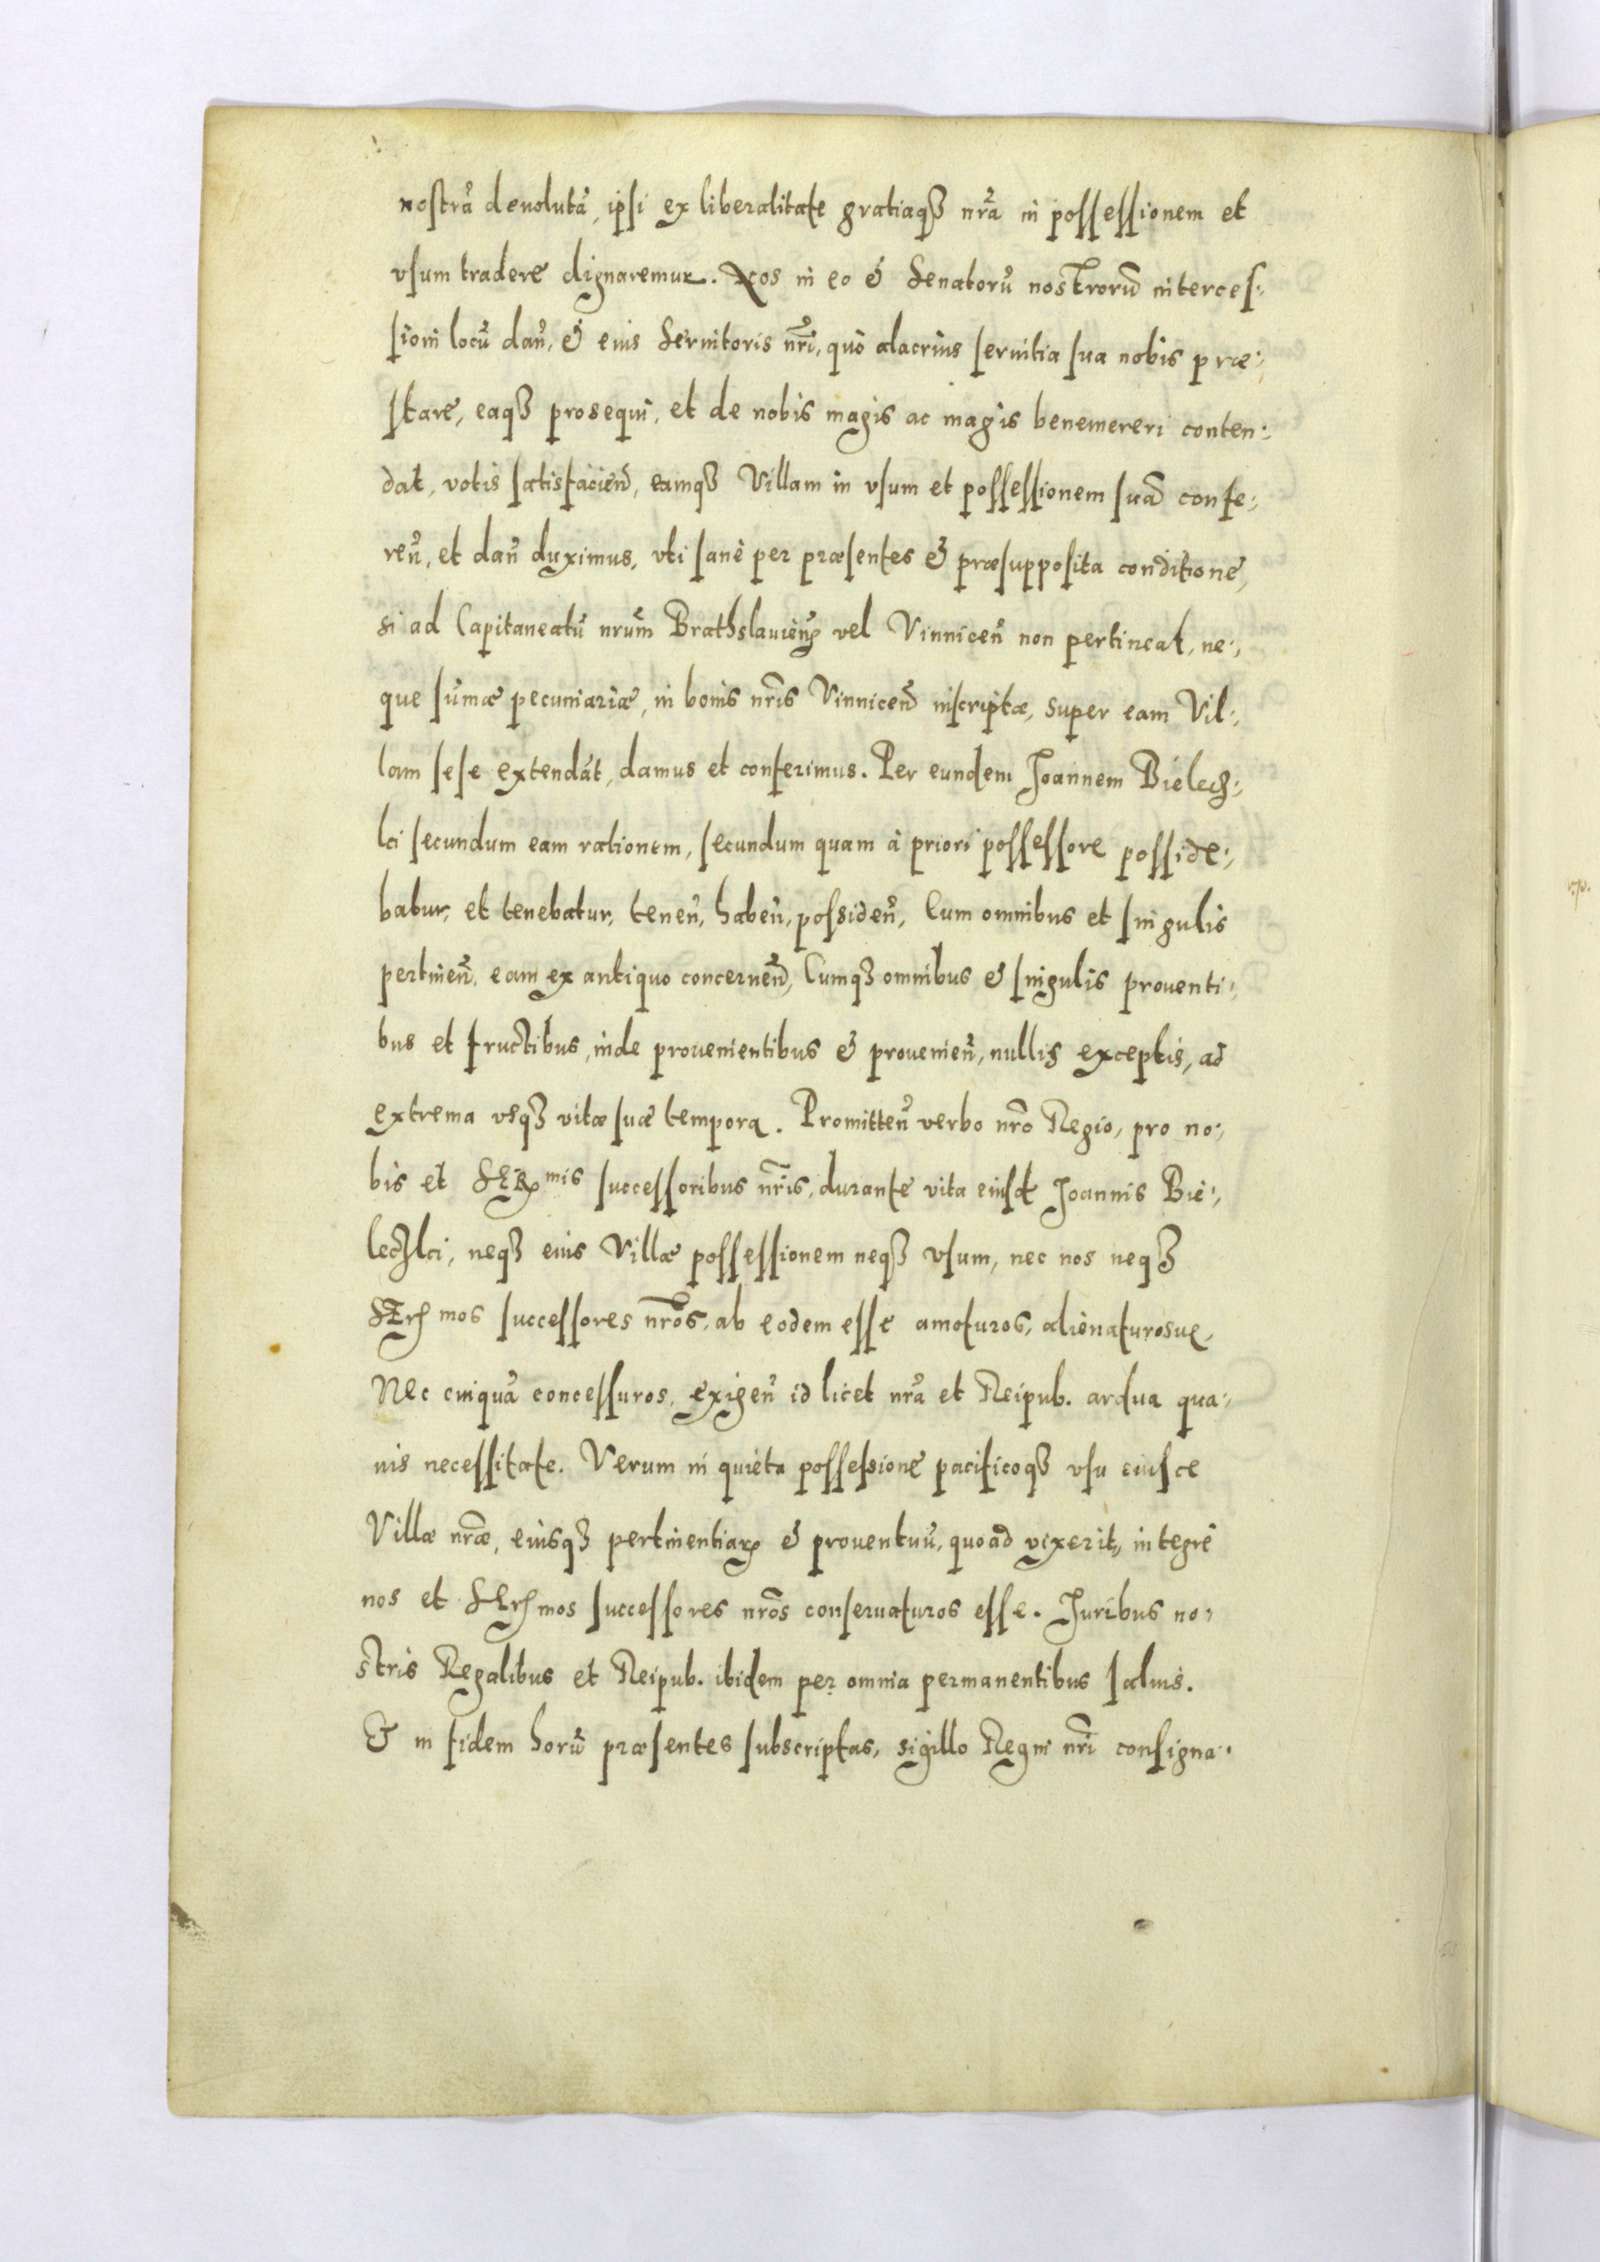 nostrã deuolutã, ipsi ex liberalitate gratiaqȝ nrã in possessionem et
vsum tradere dignaremur. Nos in eo & Senatorũ nostrorũ interces:
sioni locũ dañ, & eius Seruitoris nrĩ, quò alacrius seruitia sua nobis præ:
stare, eaqȝ prosequi, et de nobis magis ac magis benemereri conten:
dat, votis satisfacieñ, eamqȝ Villam in vsum et possessionem suã confe:
reñ, et dañ duximus, vti sanè per præsentes & præsupposita conditione,
si ad Capitaneatũ nrũm Brathslauieñ vel Vinniceñ non pertineat, ne:
que sum̃æ pecuniariæ, in bonis nrĩs Vinniceñ inscriptæ, super eam Vil:
lam sese extendãt, damus et conferimus. Per eundem Joannem Bielecz:
ki secundum eam rationem, secundum quam à priori possessore posside:
batur, et tenebatur, teneñ, habeñ, possideñ, Cum omnibus et singulis
pertineñ, eam ex antiquo concerneñ, Cumqȝ omnibus & singulis prouenti:
bus et fructibus, inde prouenientibus & prouenieñ, nullis exceptis, ad
extrema vsqȝ vitæ suæ tempora. Promitteñ verbo nrõ Regio, pro no:
bis et SERmis successoribus nrĩs, durante vita eiusd Joannis Bie:
leczki, neqȝ eius Villæ possessionem neqȝ vsum, nec nos neqȝ
SERmos successores nrõs, ab eodem esse amoturos, alienaturosue,
Nec cuiquã concessuros, exigeñ id licet nrã et Reipub. ardua qua:
uis necessitate. Verum in quieta possessione pacificoqȝ vsu eiusce
Villæ nræ̃, eiusqȝ pertinentiarꝝ & prouentuũ, quoad vixerit, integrè
nos et SERmos successores nrõs conseruaturos esse. Juribus no:
stris Regalibus et Reipub. ibidem per omnia permanentibus saluis.
& in fidem horũ præsentes subscriptas, sigillo Regni nrĩ consigna: